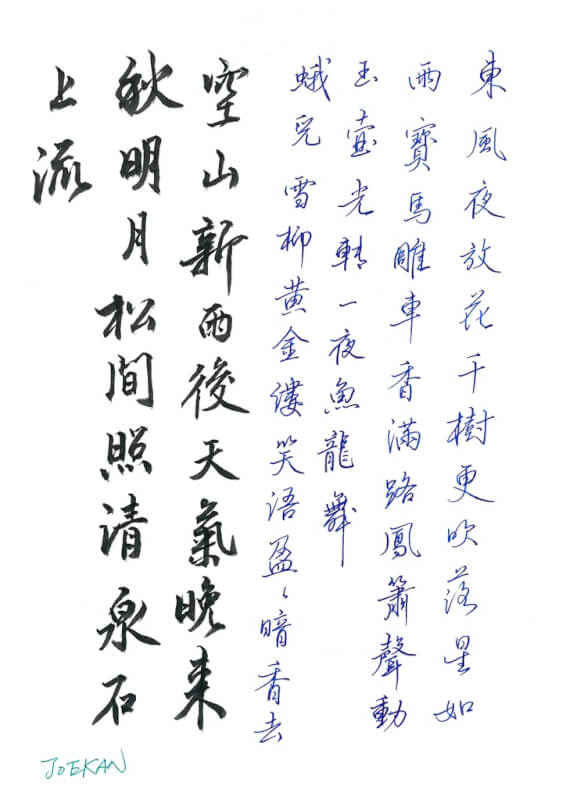 東風夜放花千樹更吹落星如
雨寶馬雕車香滿路鳳簫聲動
玉壺光轉一夜魚龍舞
蛾兒雪柳黃金縷笑語盈〻暗香去
空山新雨後天氣晚来
秋明月松間照清泉石
上流
JOEKAN